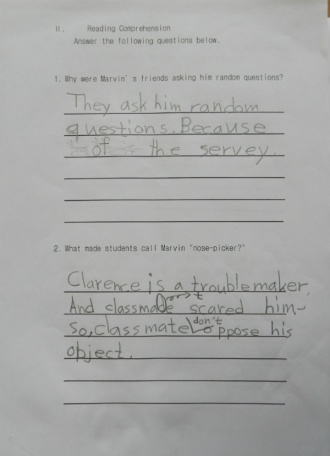 II. Reading Comprehension
Answer the following questions below.
1. Why were Marvin's friends asking him random questions?
They ask him random
questions. Because
of the servey.
2. What made students call Marvin "nose-picker?"
Clarence is a troublemaker.
And classmate scared him
So, classmate don't oppose his
object.